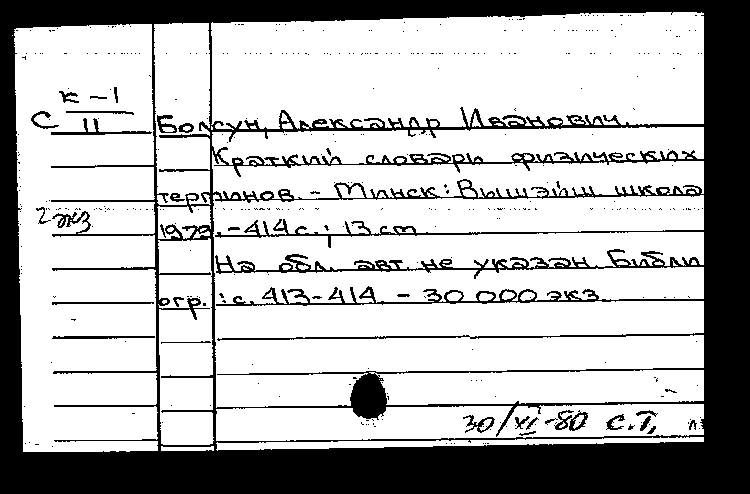 к-1
С 11
Болсун, Александр Иванович.
Краткий словарь физических
терминов. - Минск: Вышэйш школа
2 экз
1979. - 414 с.; 13 cm
На обл. авт. не указан. Библи
огр.: с. 413-414. - 30 000 экз.
30/XI-80 С.Т.